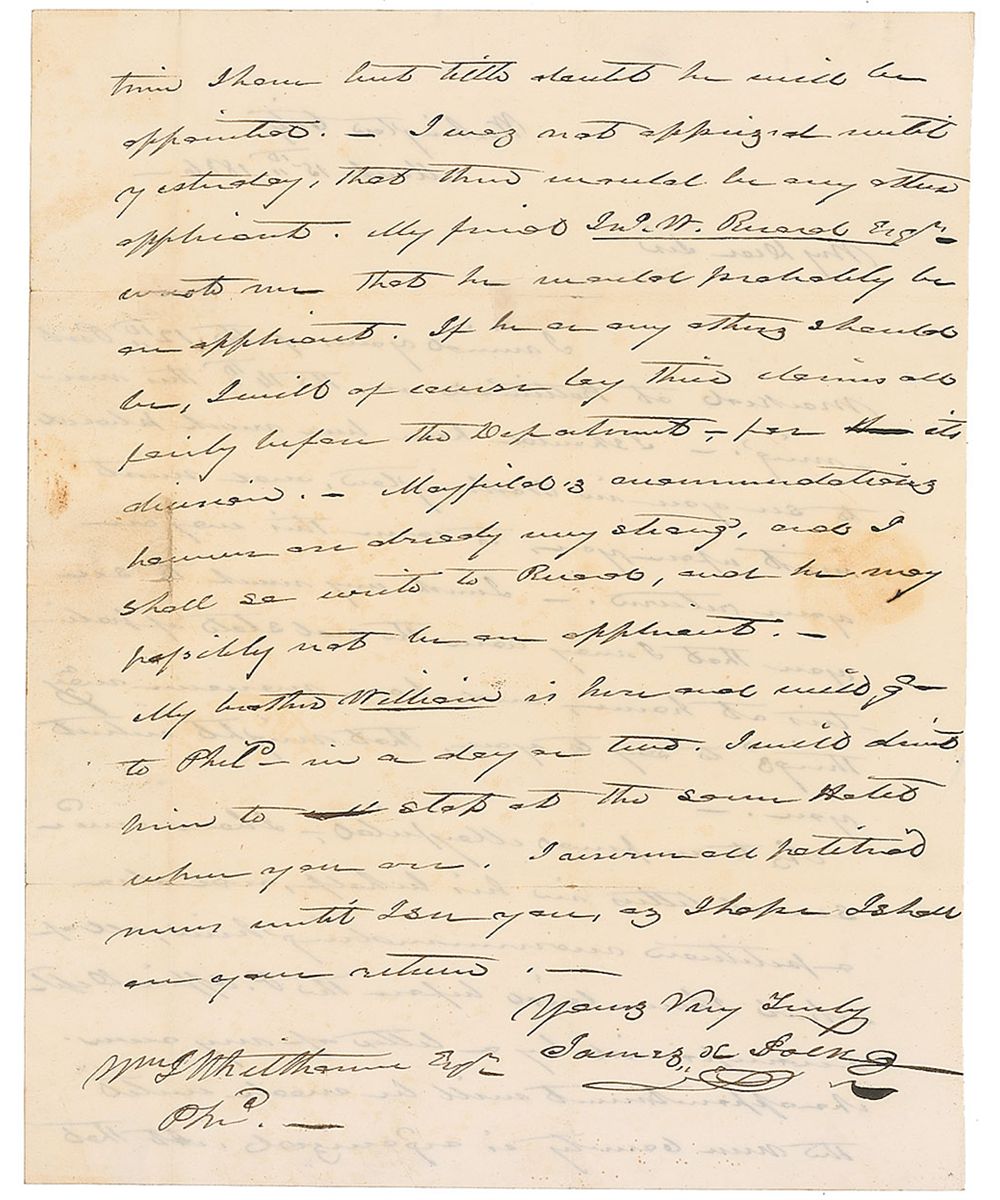 time I have but little doubt he will be
appointed. – I was not apprized until
yesterday, that there would be any other
applicant. My friend Jno. W. Record Esqr.
wrote me that he would probably be
an applicant. If he or any others should
be, I will of course lay their claims all
fairly before the Department, – for its
decision. – Mayfield's recommendations
however are already very strong, and I
shall so write to Record, and he may
possibly not be an applicant. –
My brother William is here and will go
to Phila. in a day or two. I will direct
him to stop at the same Hotel
where you are. I reserve all political
news until I see you, as I hope I shall
on your return. –
Yours Very Truly
James K Polk
Wm J Whitthorne Esqr.
Phia. –